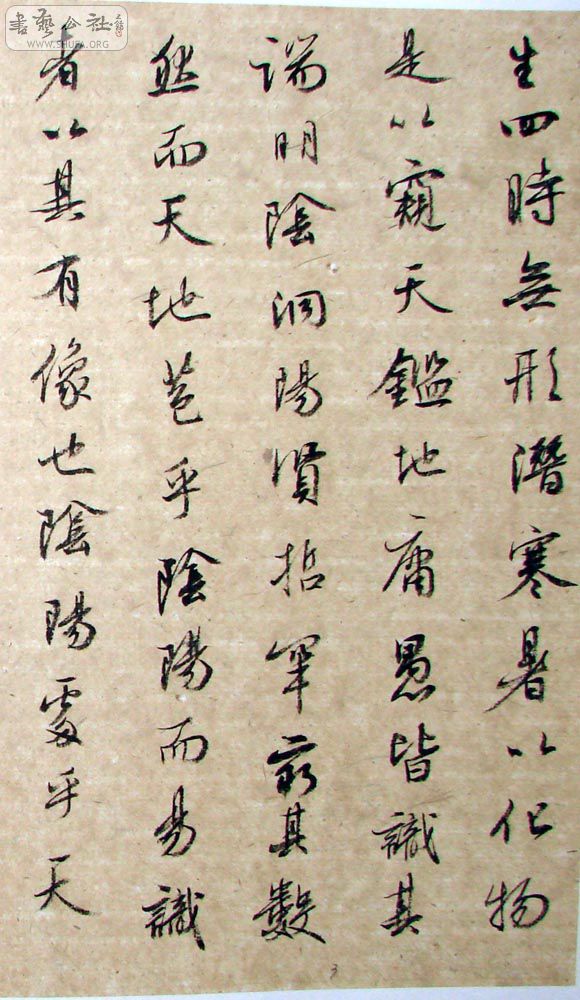 生四時無形潛寒暑以化物
是以窺天鑑地庸愚皆識其
端明陰洞陽賢拈罕窮其數
然而天地苞乎陰陽而易識
者以其有像也陰陽處乎天
書藝公社
WWW.SHUFA.ORG
3